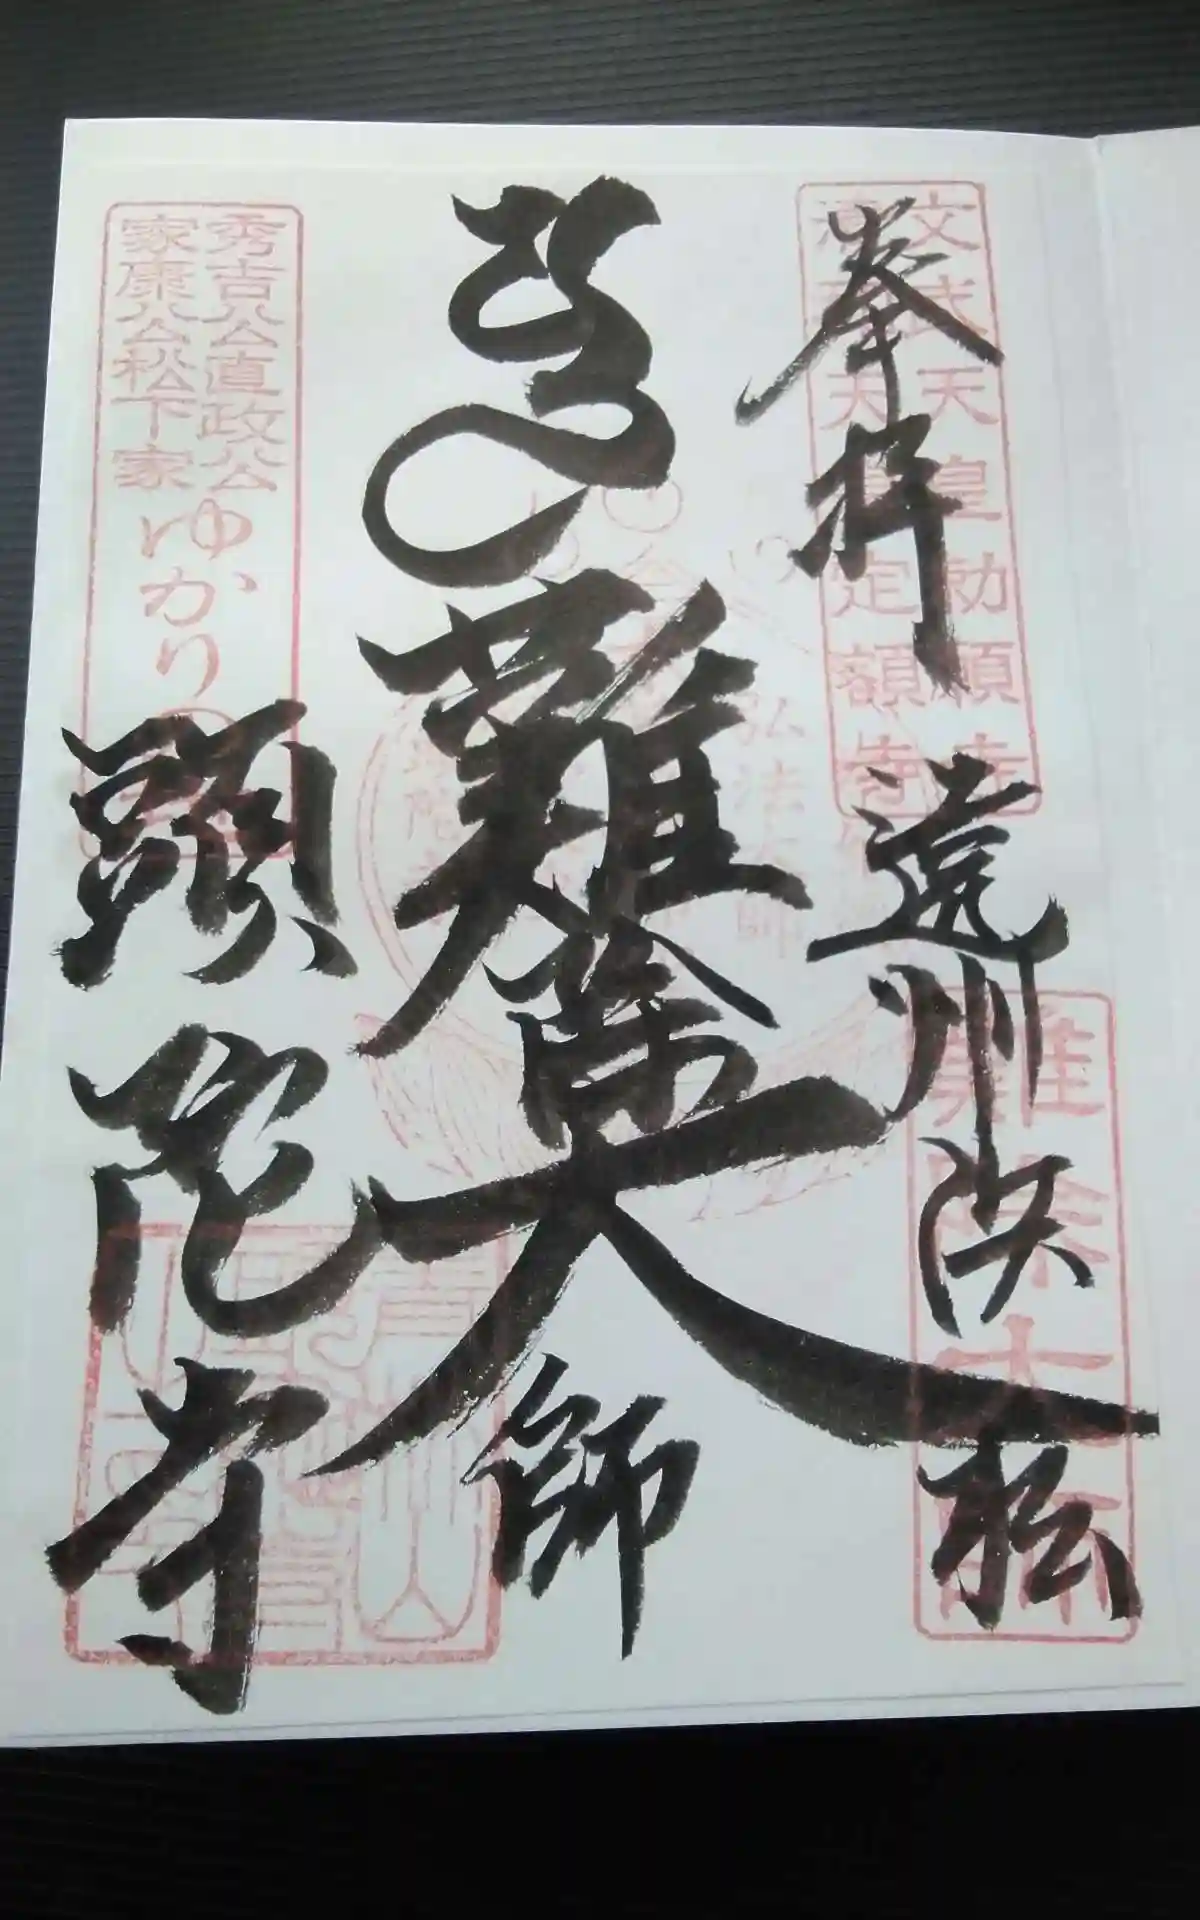 奉拝
遠州浜松
難除大師
頭陀寺
文武天皇勅願寺
定額寺
難除大師
秀吉公直政公
家康公松下家
ゆかりの
弘法大師
青林山